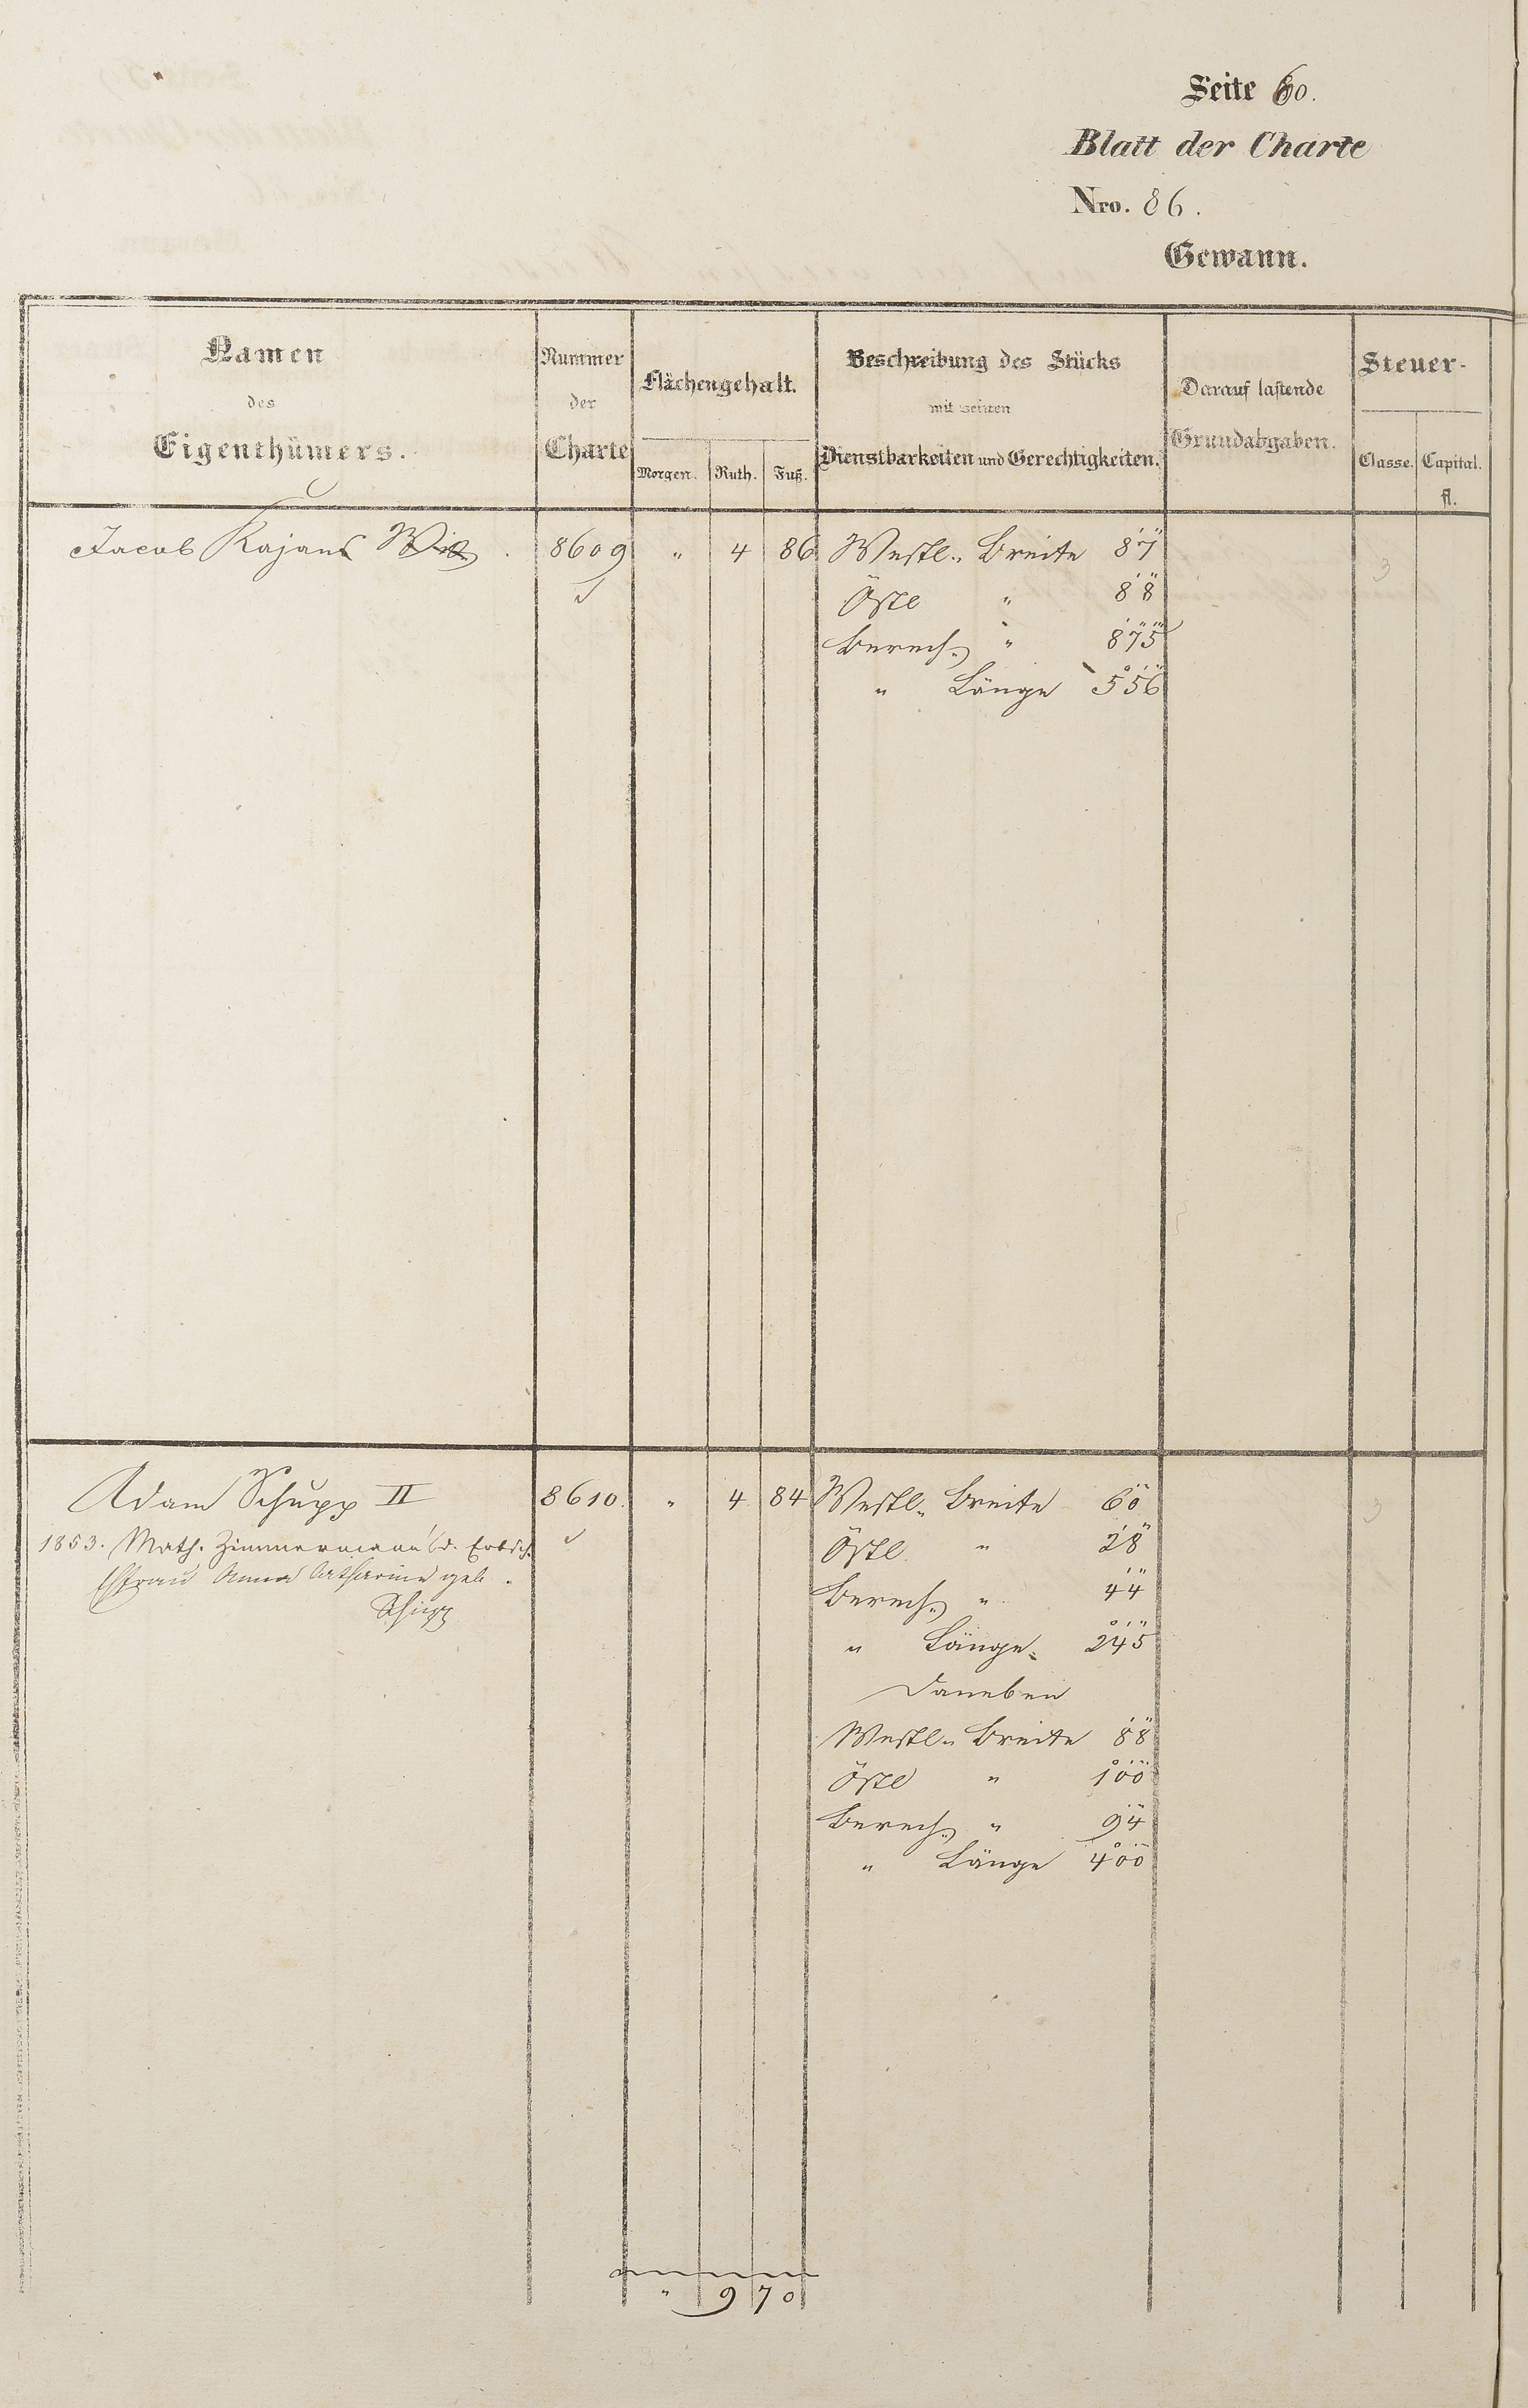 Seite 60.
Blatt der Charte
Nro. 86.
Gewann.
Namen
des
Eigenthümers.
Nummer
der
Charte
Flächengehalt.
Morgen. Ruth. Fuß.
Beschreibung des Stücks
mit seinen
Dienstbarkeiten und Gerechtigkeiten.
Darauf lastende
Grundabgaben.
Steuer-
Classe. Capital.
fl.
Jacob Kajans 8609 " 4 86 Westl. Breite 87
Östl " 88
Berech. " 875
" Länge 556
3
Adam Schupp II 8610. " 4 84 Westl. Breite 60
1853. Math. Zimmermann's d. Erbsch. Östl. " 28
Ehfrau Anna Catharina geb. Berech. " 44
Schupp
" Länge 245
Daneben
Westl. Breite 88
Östl " 100
Berech. " 94
" Länge 400
3
" 9 70